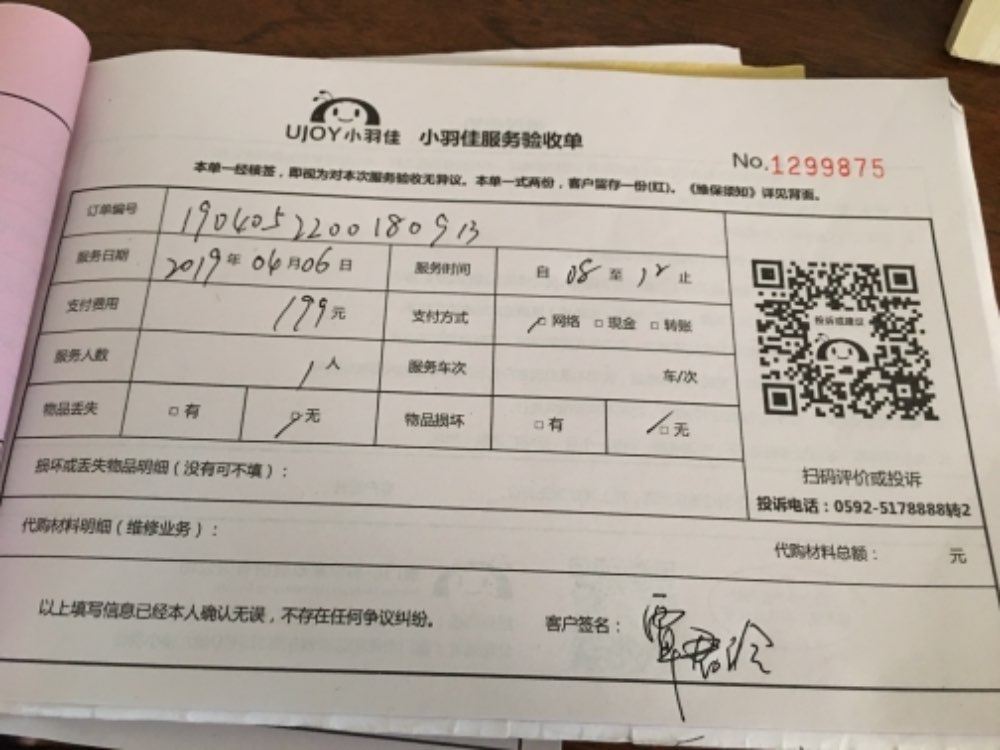 UJOY小羽佳 小羽佳服务验收单
No.1299875
本单一经核签，即视为对本次服务验收无异议。本单一式两份，客户留存一份(红)。《维保须知》详见背面。
订单编号 1904052200180913
服务日期 2019年04月06日 服务时间 自08至12止
支付费用 199元 支付方式 □网络 □现金 □转账
服务人数 1人 服务车次 车/次
物品丢失 □有 □无 物品损坏 □有 □无
投诉或建议
扫码评价或投诉
投诉电话：0592-5178888转2
损坏或丢失物品明细（没有可不填）：
代购材料明细（维修业务）：
代购材料总额： 元
以上填写信息已经本人确认无误，不存在任何争议纠纷。 客户签名：